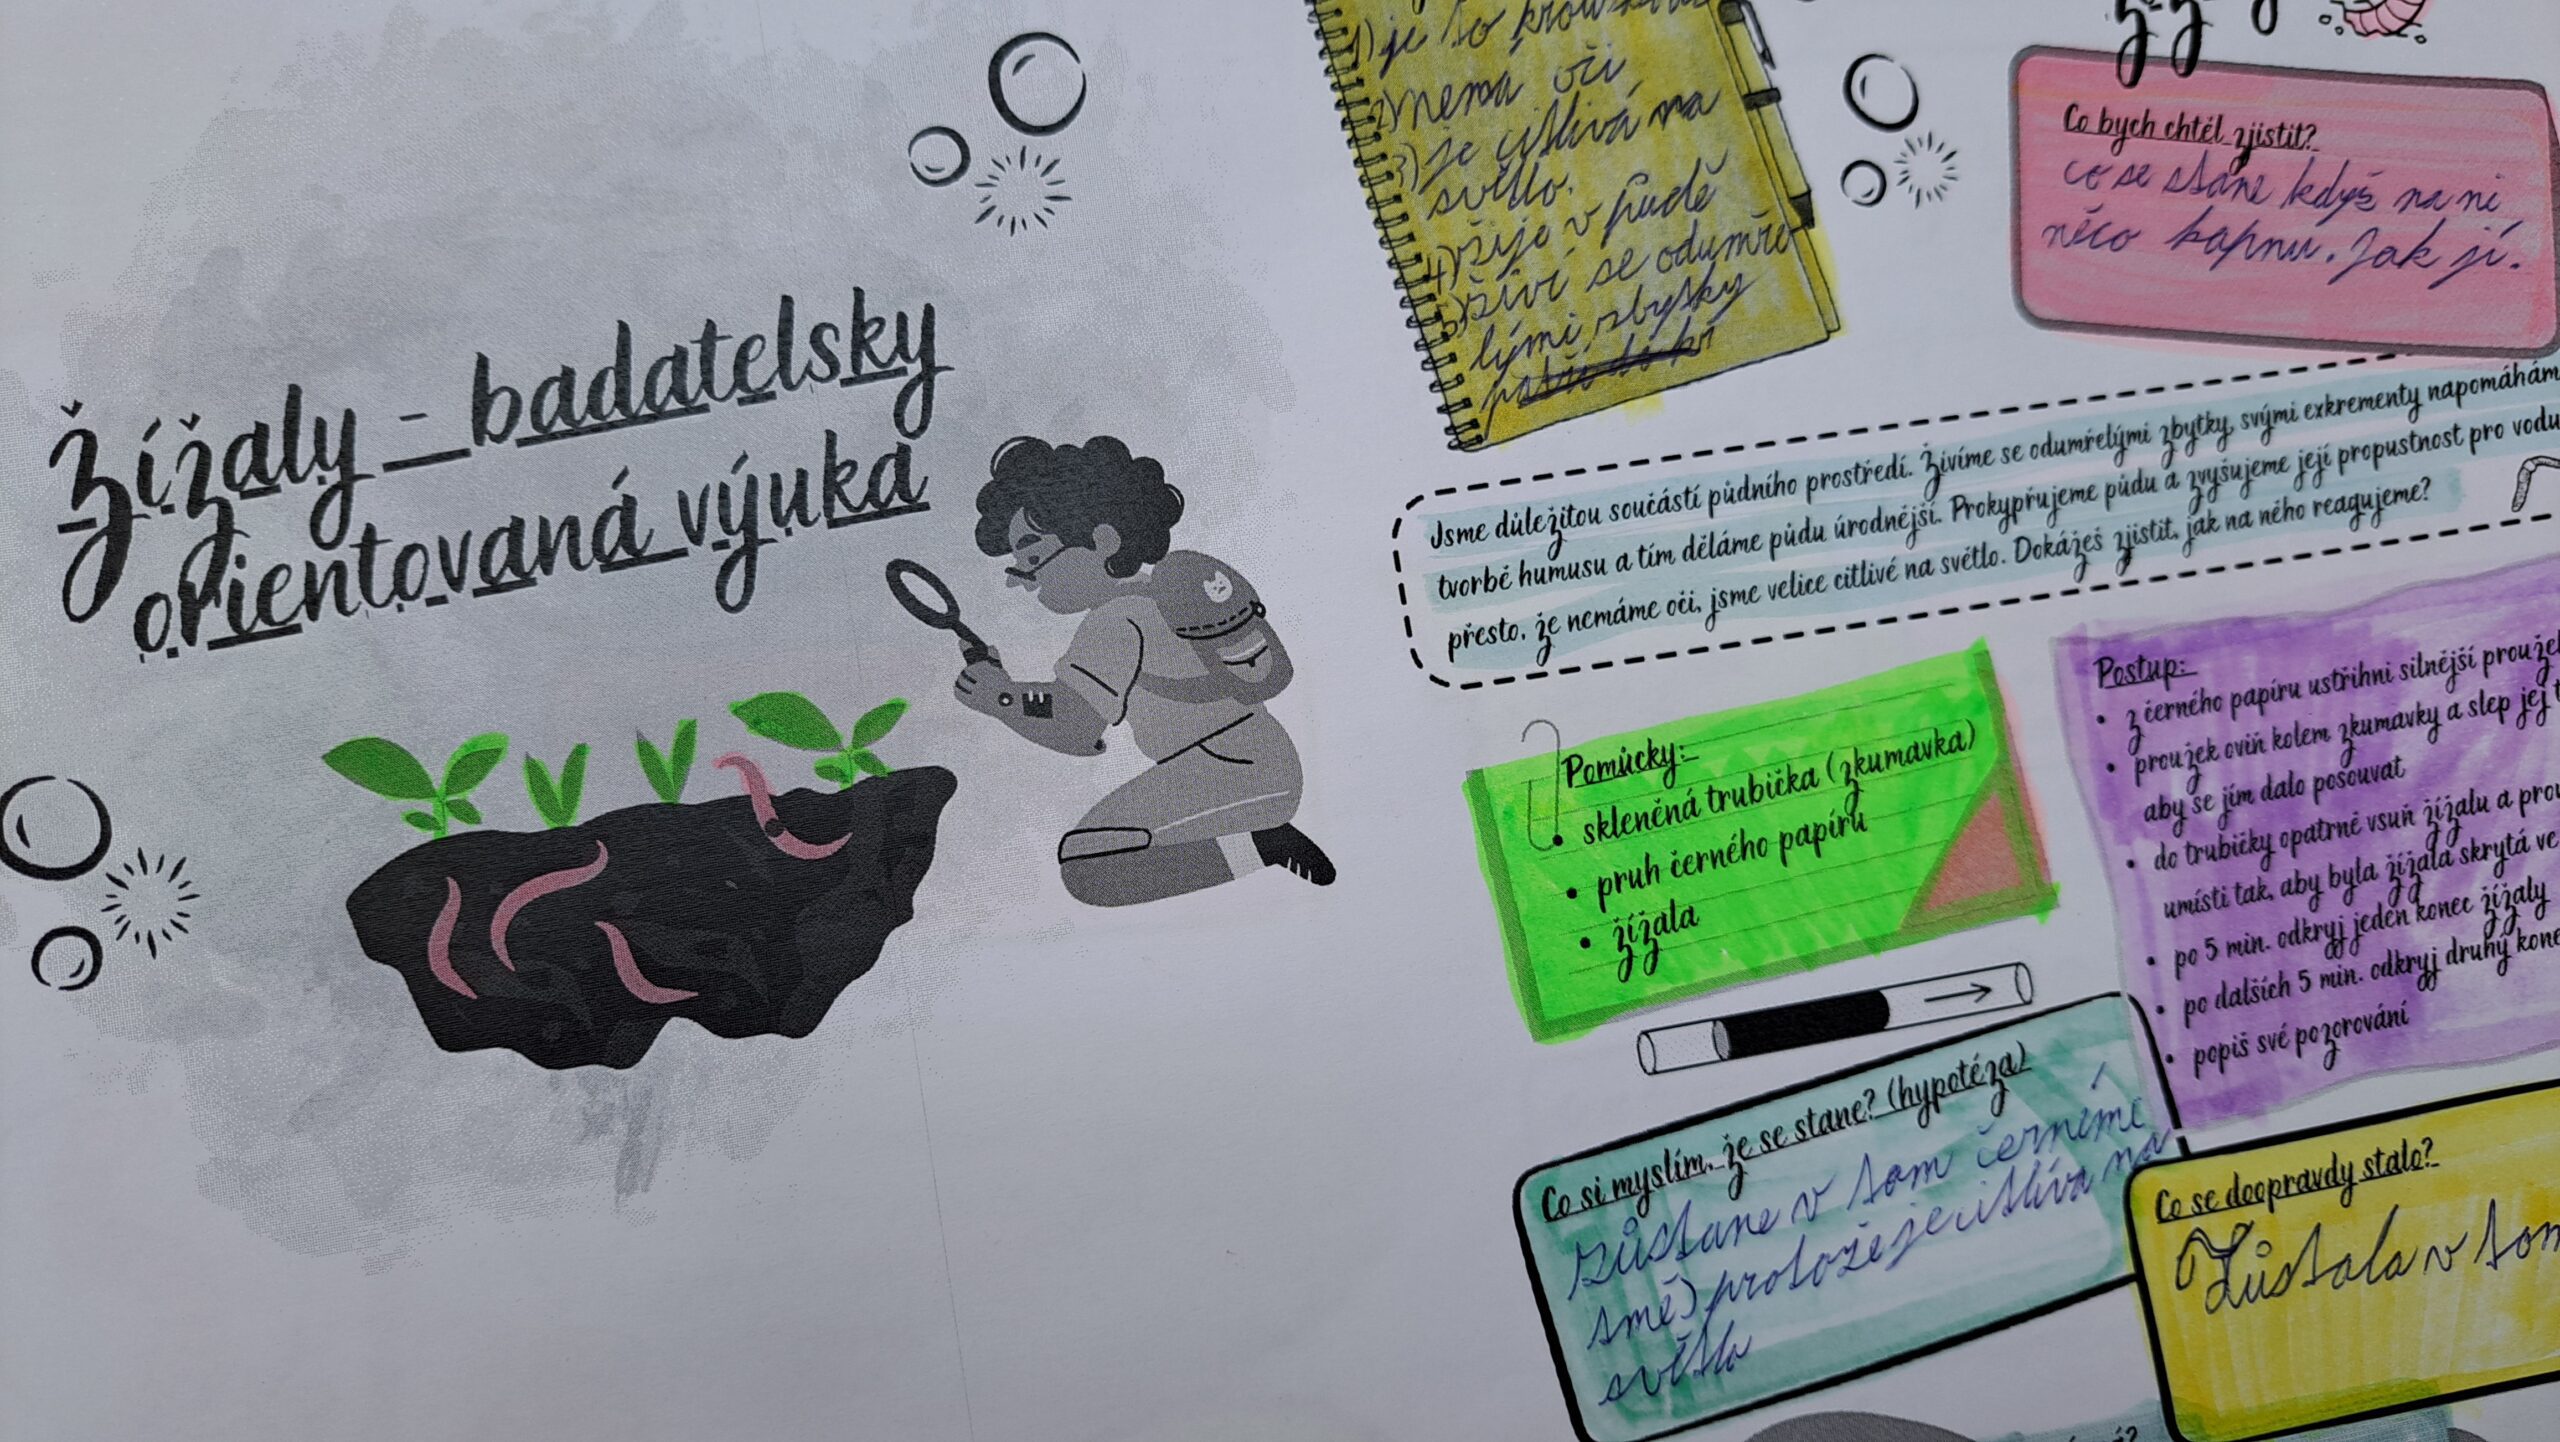 Žížaly - badatelsky
orientovaná výuka
1) je to
2) nemá oči
3) je citlivá na
světlo.
4) žije v půdě
5) živí se odumře
lými zbytky
Co bych chtěl zjistit?
co se stane když na ni
něco kapnu. Jak jí.
Jsme důležitou součástí půdního prostředí. Živíme se odumřelými zbytky, svými exkrementy napomáhám
tvorbě humusu a tím děláme půdu úrodnější. Prokypřujeme půdu a zvyšujeme její propustnost pro vodu
přesto, že nemáme oči, jsme velice citlivé na světlo. Dokážeš zjistit, jak na něho reagujeme?
Pomůcky:
• skleněná trubička (zkumavka)
• pruh černého papíru
• žížala
Postup:
• z černého papíru ustřihni silnější proužek
• proužek oviň kolem zkumavky a slep jej t
aby se jím dalo posouvat
• do trubičky opatrně vsuň žížalu a prou
umísti tak, aby byla žížala skrytá ve
• po 5 min. odkryj jeden konec žížaly
• po dalších 5 min. odkryj druhý kone
• popiš své pozorování
Co si myslím, že se stane? (hypotéza)
zůstane v tom černémí
smě) protože je citlivá na
světlo
Co se doopravdy stalo?
Zůstala v tom